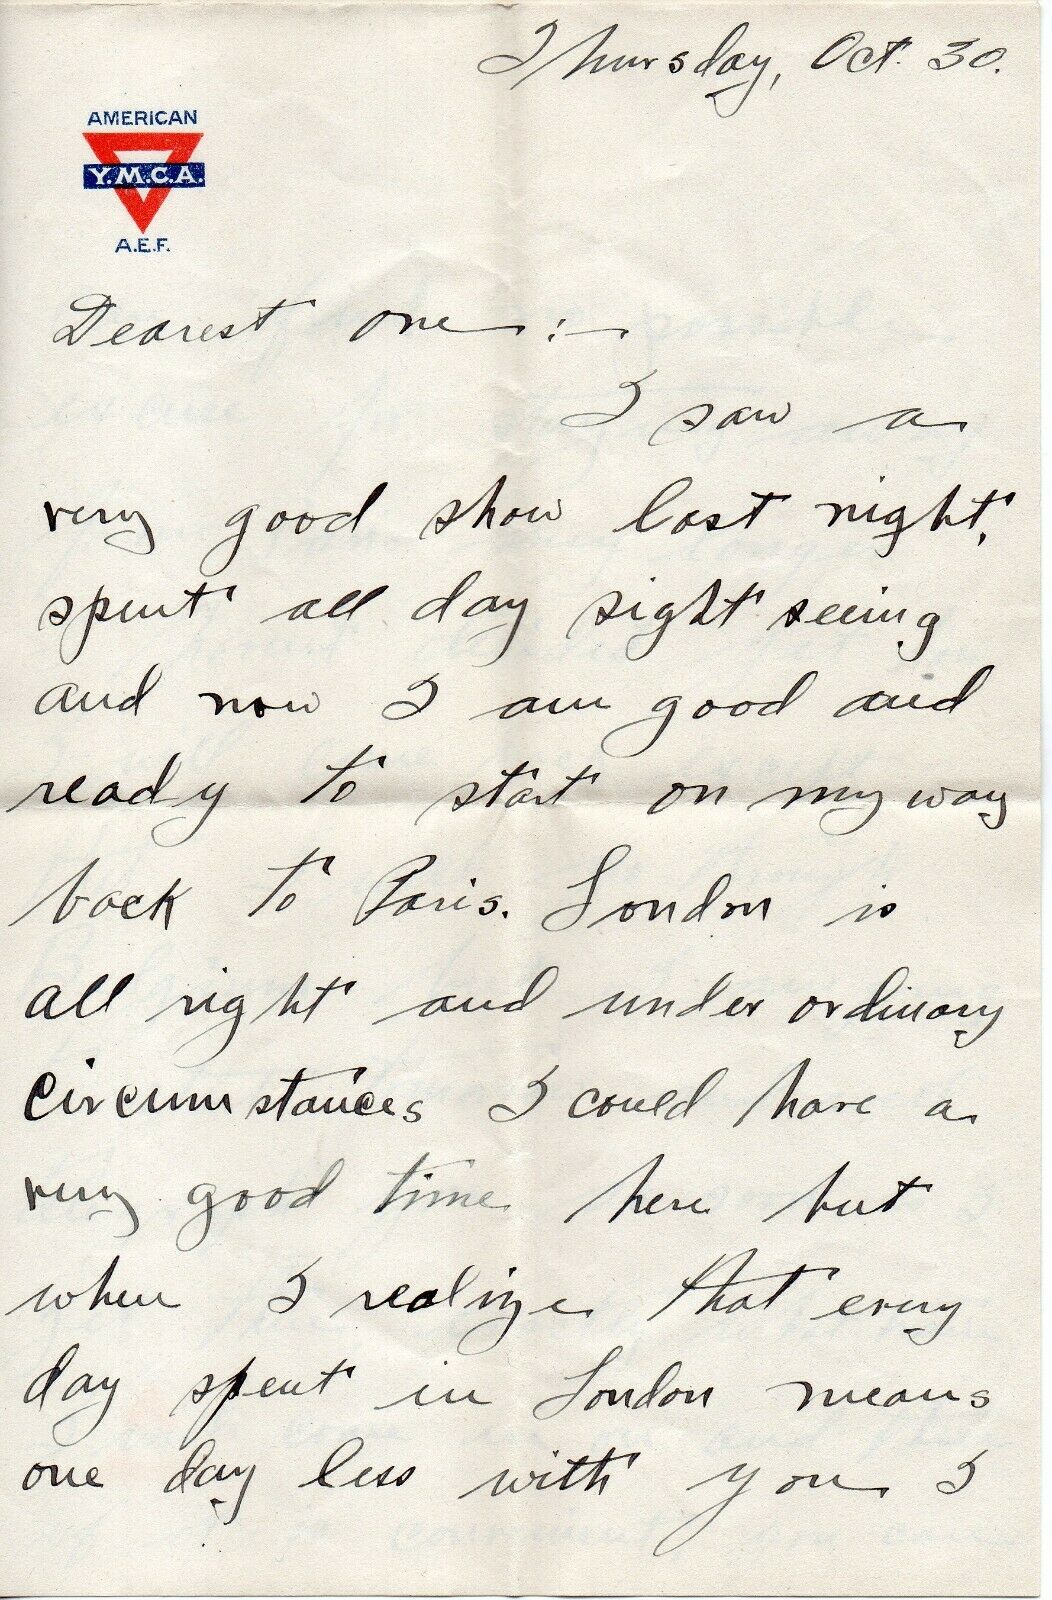 Thursday, Oct. 30.
AMERICAN
Y.M.C.A.
A.E.F.
Dearest one:-
I saw a
very good show last night,
spent all day sight seeing
and now I am good and
ready to start on my way
back to Paris. London is
all right and under ordinary
circumstances I could have a
very good time here but
when I realize that every
day spent in London means
one day less with you I